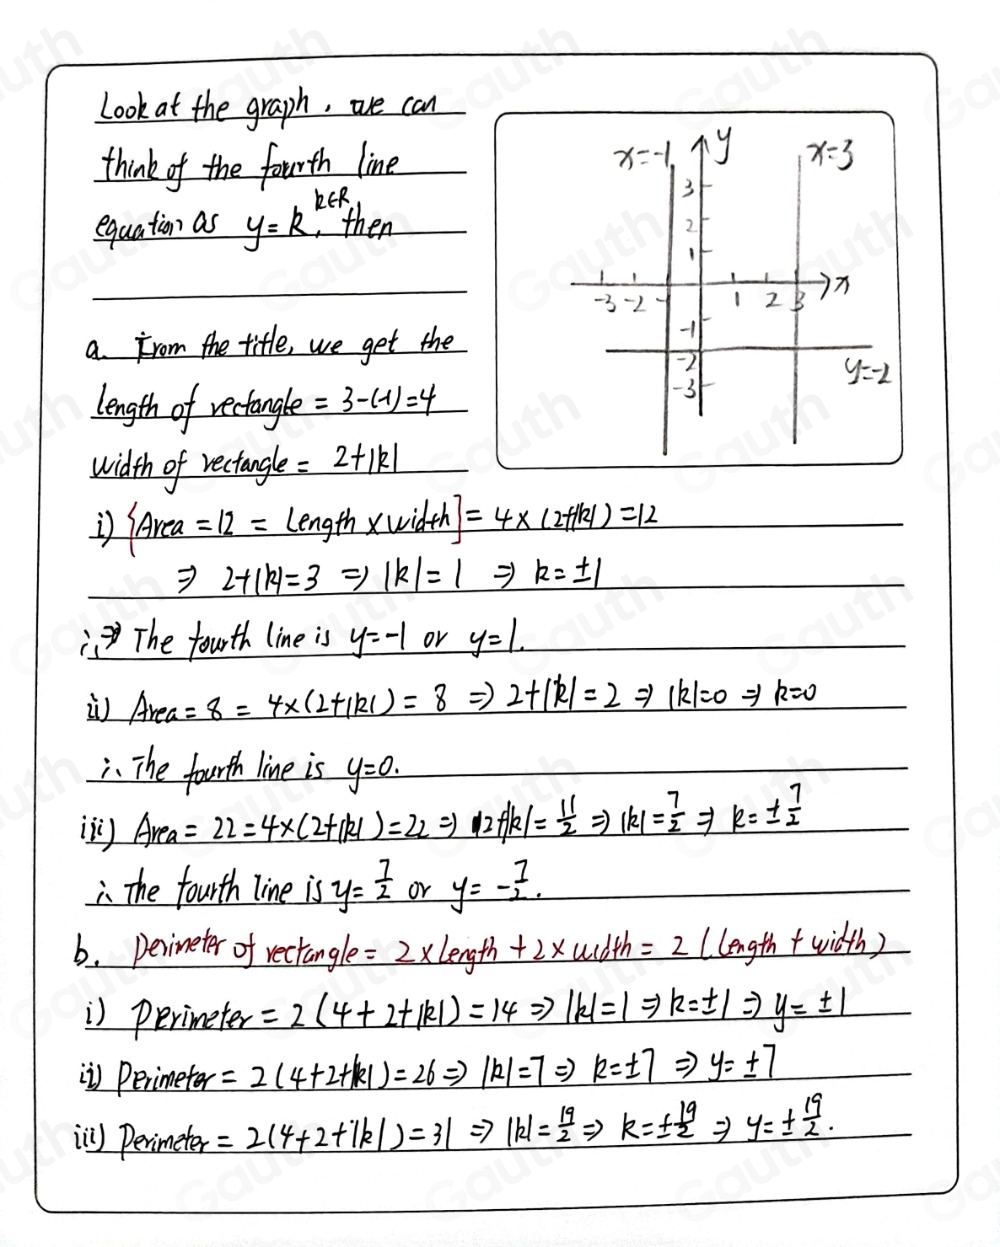 Look at the graph, we can
think of the fourth line
equation as y=k, k∈R, then
x=-1
y
x=3
3
2
1
-3 -2 1 2 3 x
-1
-2
-3
y=-2
a. From the title, we get the
length of rectangle = 3-(-1)=4
width of rectangle = 2+|k|
i) {Area = 12 = Length × width] = 4×(2+|k|)=12
⇒ 2+|k|=3 ⇒ |k|=1 ⇒ k=±1
∴⇒ The fourth line is y=-1 or y=1.
ii) Area = 8 = 4×(2+|k|) = 8 ⇒ 2+|k|=2 ⇒ |k|=0 ⇒ k=0
∴ The fourth line is y=0.
iii) Area = 22=4×(2+|k|)=22 ⇒ 2+|k|=11/2 ⇒ |k|=7/2 ⇒ k=±7/2
∴ The fourth line is y=7/2 or y=-7/2.
b. Perimeter of rectangle = 2×Length + 2×width = 2 (Length + width)
i) Perimeter = 2(4+2+|k|)=14 ⇒ |k|=1 ⇒ k=±1 ⇒ y=±1
ii) Perimeter = 2(4+2+|k|)=26 ⇒ |k|=7 ⇒ k=±7 ⇒ y=±7
iii) Perimeter = 2(4+2+|k|)=31 ⇒ |k|=19/2 ⇒ k=±19/2 ⇒ y=±19/2.
Gauth